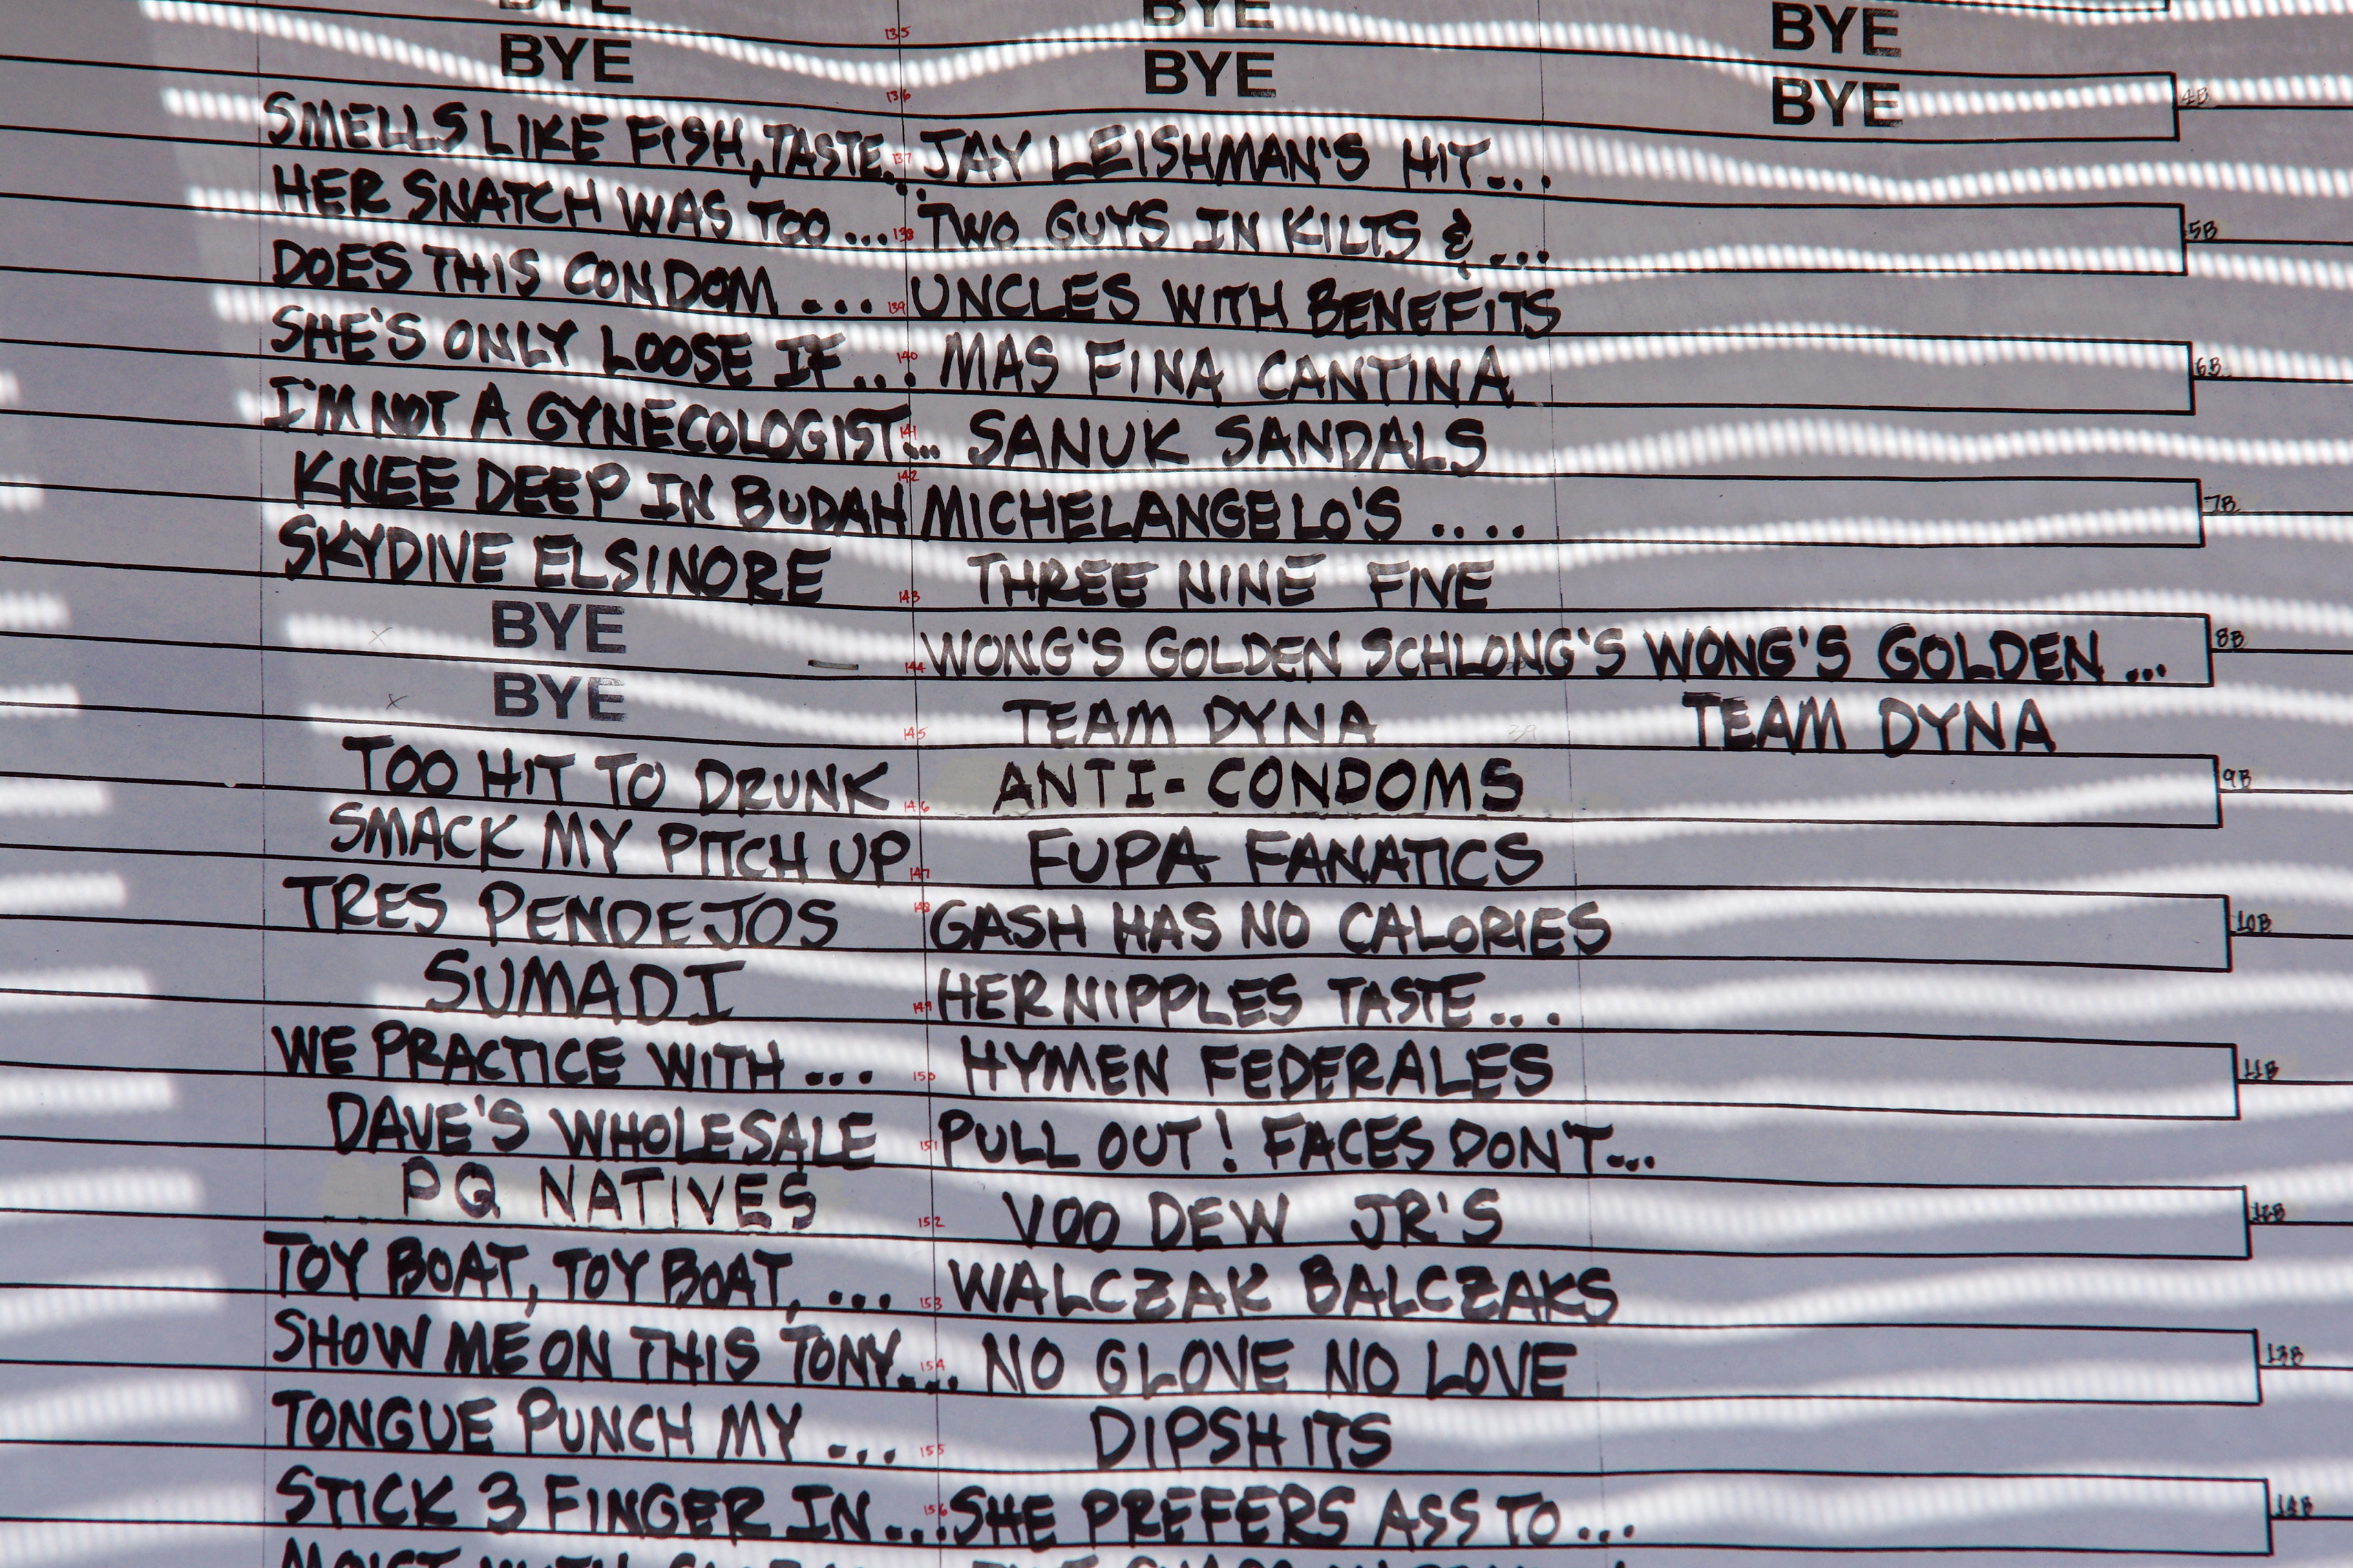 BYE BYE BYE
135
BYE BYE BYE
136 4B
SMELLS LIKE FISH, TASTE... 137 JAY LEISHMAN'S HIT...
HER SNATCH WAS TOO... 138 TWO GUYS IN KILTS & ... 5B
DOES THIS CONDOM ... 139 UNCLES WITH BENEFITS
SHE'S ONLY LOOSE IF... 140 MAS FINA CANTINA 6B
I'M NOT A GYNECOLOGIST... 141 SANUK SANDALS
KNEE DEEP IN BUDAH 142 MICHELANGELO'S .... 7B
SKYDIVE ELSINORE 143 THREE NINE FIVE
BYE 144 WONG'S GOLDEN SCHLONG'S WONG'S GOLDEN ... 8B
BYE 145 TEAM DYNA 39 TEAM DYNA
TOO HIT TO DRUNK 146 ANTI-CONDOMS 9B
SMACK MY PITCH UP 147 FUPA FANATICS
TRES PENDEJOS 148 GASH HAS NO CALORIES 10B
SUMADI 149 HER NIPPLES TASTE...
WE PRACTICE WITH ... 150 HYMEN FEDERALES 11B
DAVE'S WHOLESALE 151 PULL OUT! FACES DON'T...
PQ NATIVES 152 VOO DEW JR'S 12B
TOY BOAT, TOY BOAT, ... 153 WALCZAK BALCZAKS
SHOW ME ON THIS TONY... 154 NO GLOVE NO LOVE 13B
TONGUE PUNCH MY ... 155 DIPSHITS
STICK 3 FINGER IN... 156 SHE PREFERS ASS TO... 14B